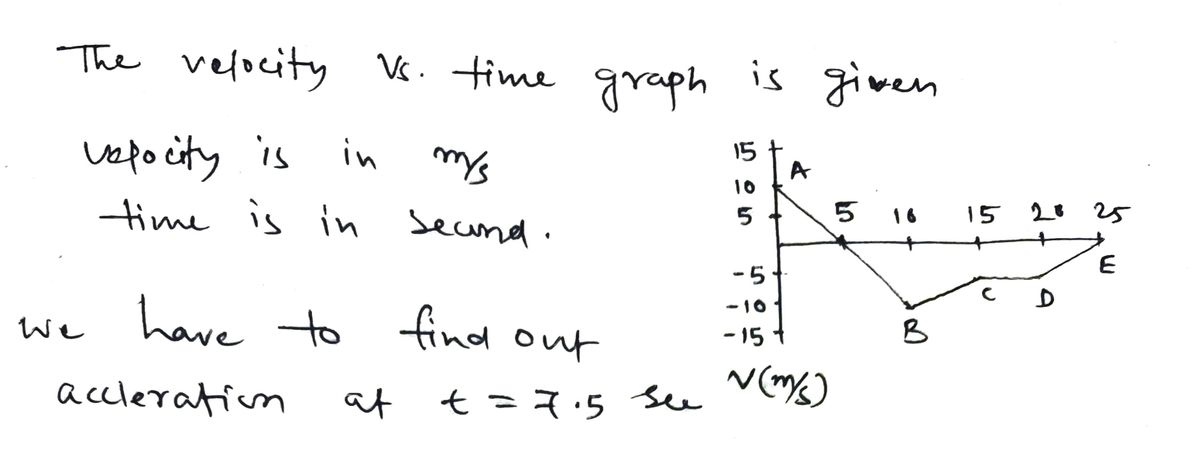 The velocity Vs. time graph is given
velocity is in m/s
time is in second.
we have to find out
accleration at t = 7.5 sec
15
A
10
5
5 10 15 20 25
E
-5
C D
-10
-15
B
V(m/s)